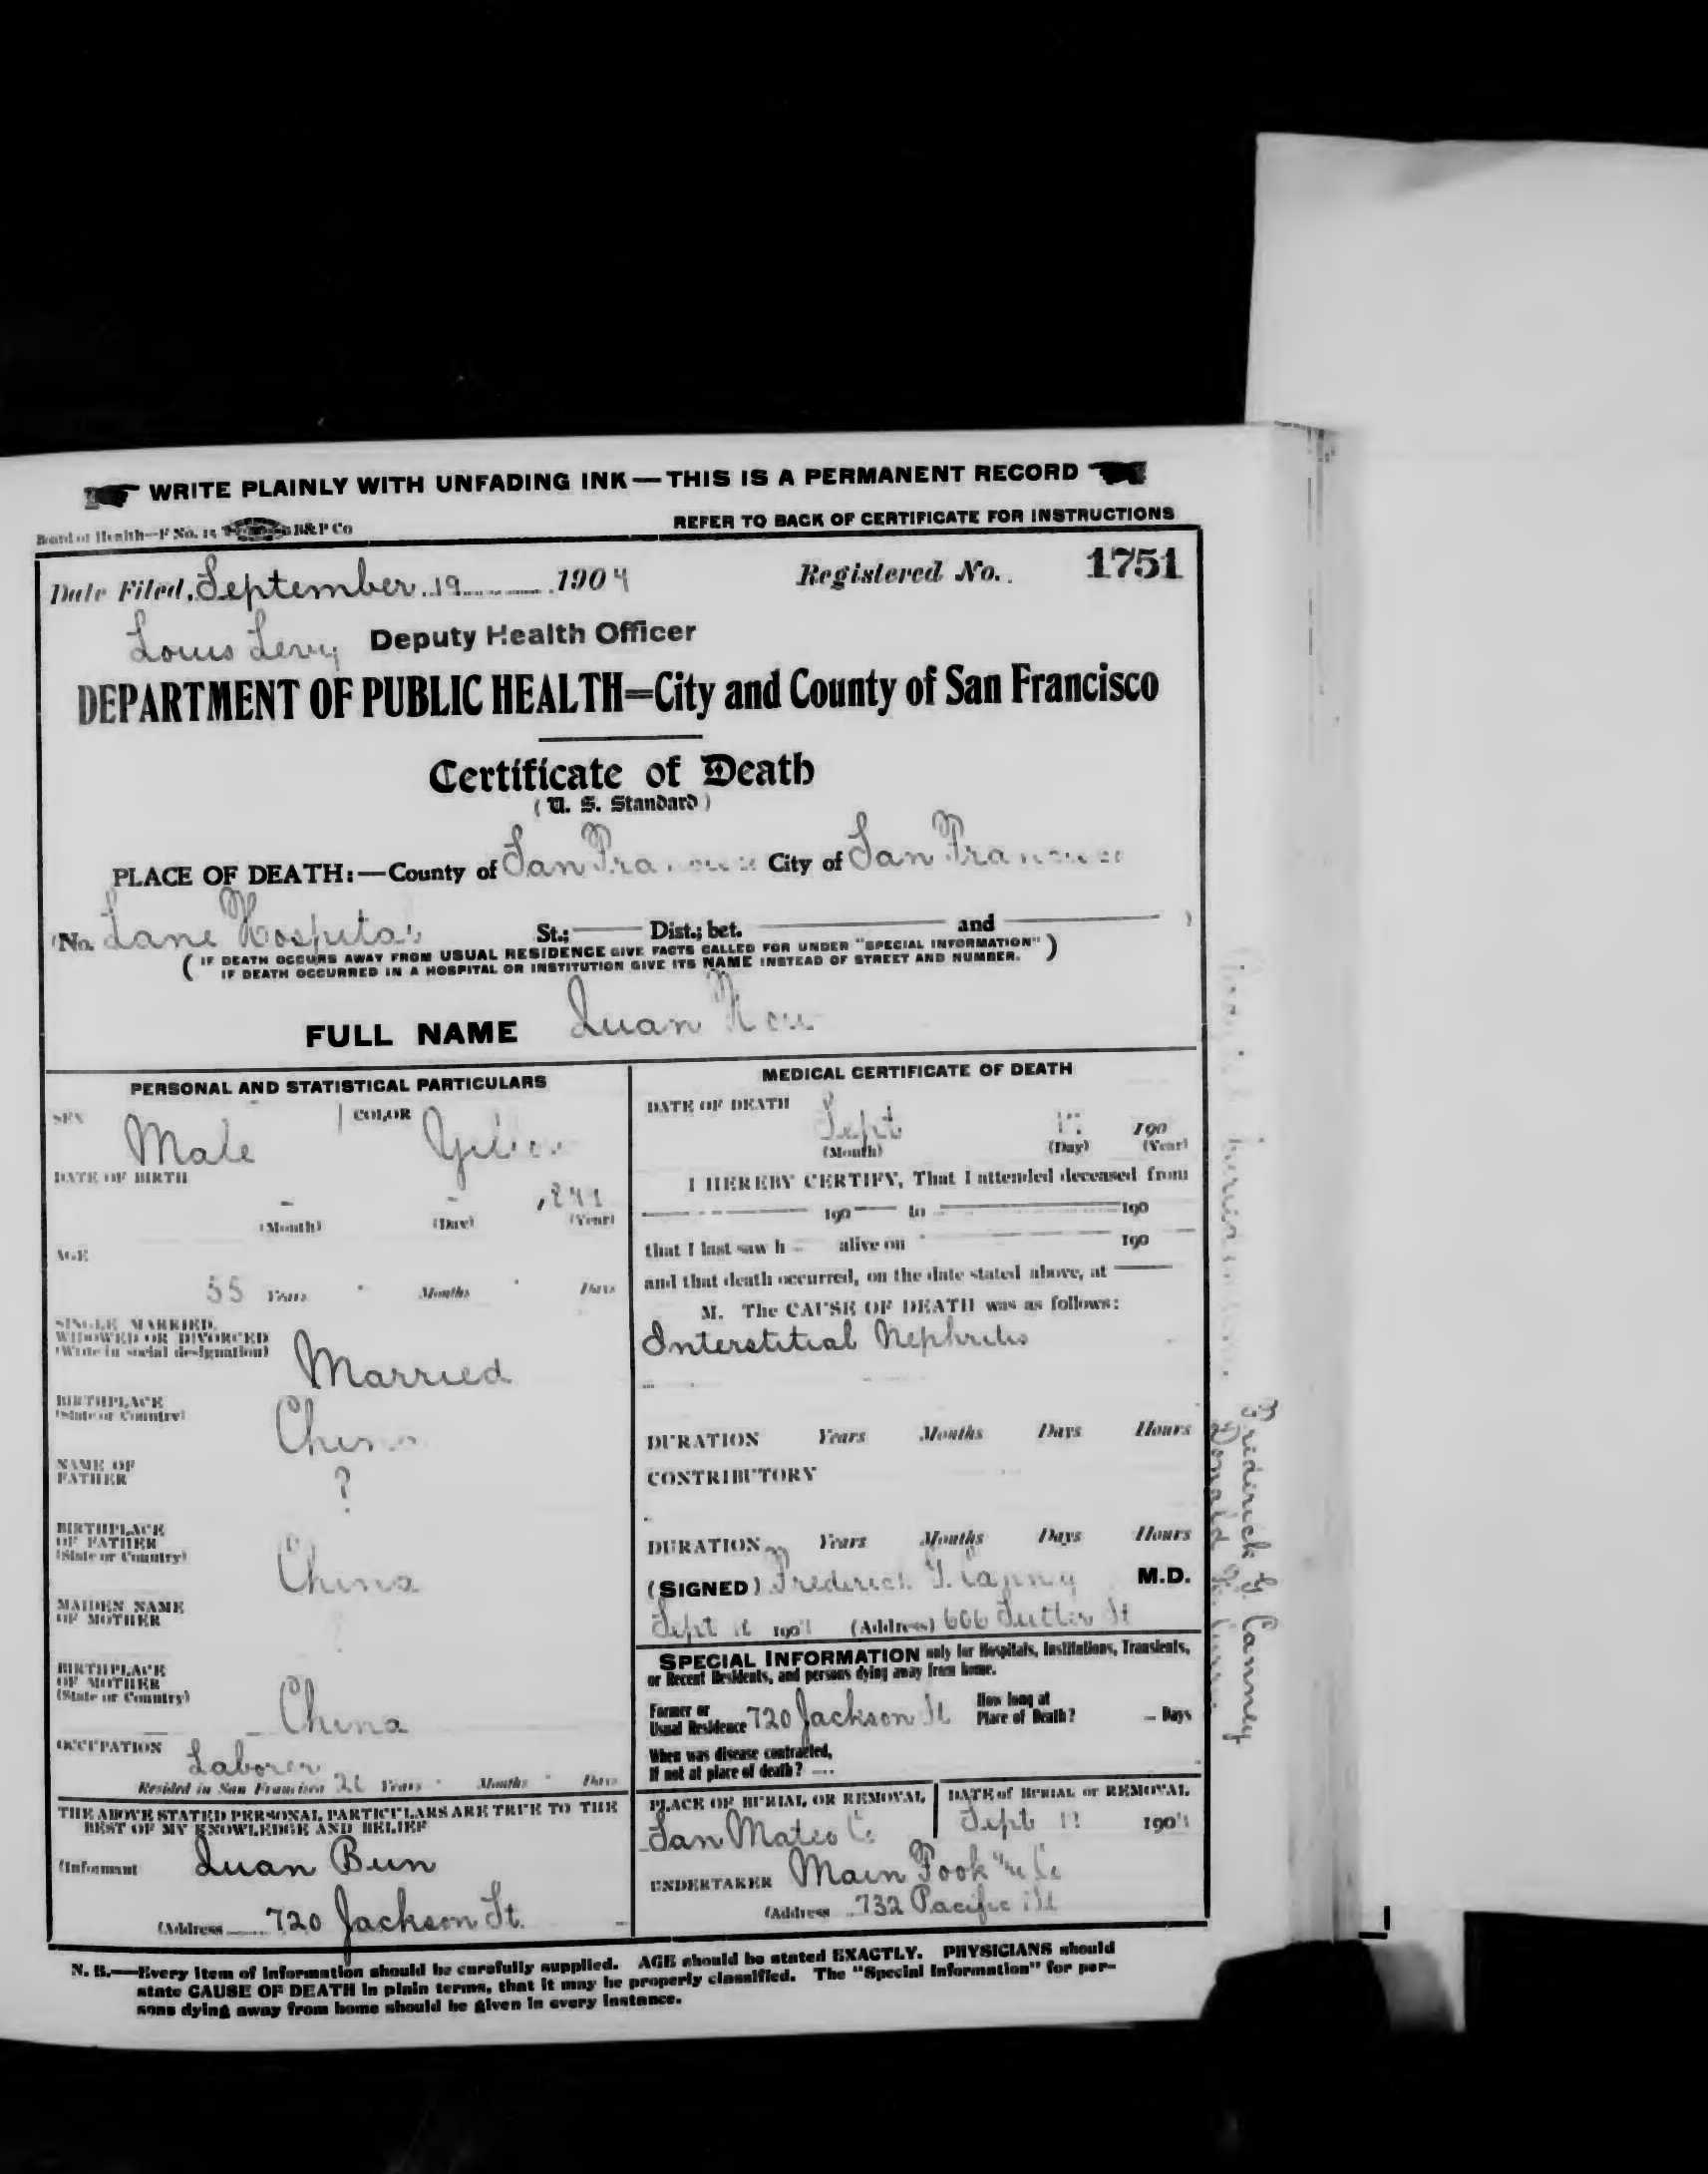 WRITE PLAINLY WITH UNFADING INK—THIS IS A PERMANENT RECORD
Board of Health—F No. 15 B&P Co
REFER TO BACK OF CERTIFICATE FOR INSTRUCTIONS
Date Filed, September 19 1904 Registered No. 1751
Louis Levy Deputy Health Officer
DEPARTMENT OF PUBLIC HEALTH=City and County of San Francisco
Certificate of Death
(U. S. Standard)
PLACE OF DEATH:—County of San Francisco City of San Francisco
(No. Lane Hospital St.; Dist.; bet. and )
( IF DEATH OCCURS AWAY FROM USUAL RESIDENCE GIVE FACTS CALLED FOR UNDER "SPECIAL INFORMATION" )
( IF DEATH OCCURRED IN A HOSPITAL OR INSTITUTION GIVE ITS NAME INSTEAD OF STREET AND NUMBER. )
FULL NAME Quan
PERSONAL AND STATISTICAL PARTICULARS
SEX Male COLOR Yellow
DATE OF BIRTH
(Month) (Day) (Year)
AGE
55 Years Months Days
SINGLE, MARRIED,
WIDOWED OR DIVORCED
(Write in social designation) Married
BIRTHPLACE
(State or Country) China
NAME OF
FATHER ?
BIRTHPLACE
OF FATHER
(State or Country) China
MAIDEN NAME
OF MOTHER
BIRTHPLACE
OF MOTHER
(State or Country) China
OCCUPATION Laborer
Resided in San Francisco Years Months Days
THE ABOVE STATED PERSONAL PARTICULARS ARE TRUE TO THE
BEST OF MY KNOWLEDGE AND BELIEF
(Informant Quan Bun
(Address 720 Jackson St.
MEDICAL CERTIFICATE OF DEATH
DATE OF DEATH
Sept 190
(Month) (Day) (Year)
I HEREBY CERTIFY, That I attended deceased from
190 to 190
that I last saw h alive on 190
and that death occurred, on the date stated above, at
M. The CAUSE OF DEATH was as follows:
Interstitial Nephritis
DURATION Years Months Days Hours
CONTRIBUTORY
DURATION Years Months Days Hours
(SIGNED) Frederick G. Canney M.D.
Sept 190 (Address) 606 Sutter St
SPECIAL INFORMATION only for Hospitals, Institutions, Transients,
or Recent Residents, and persons dying away from home.
Former or
Usual Residence 720 Jackson St
How long at
Place of Death? Days
When was disease contracted,
If not at place of death?
PLACE OF BURIAL OR REMOVAL
San Mateo Co
DATE of BURIAL or REMOVAL
Sept 190
UNDERTAKER Main Fook
(Address 732 Pacific St
N. B.—Every item of information should be carefully supplied. AGE should be stated EXACTLY. PHYSICIANS should
state CAUSE OF DEATH in plain terms, that it may be properly classified. The "Special Information" for per-
sons dying away from home should be given in every instance.
Frederick G. Canney
Donald